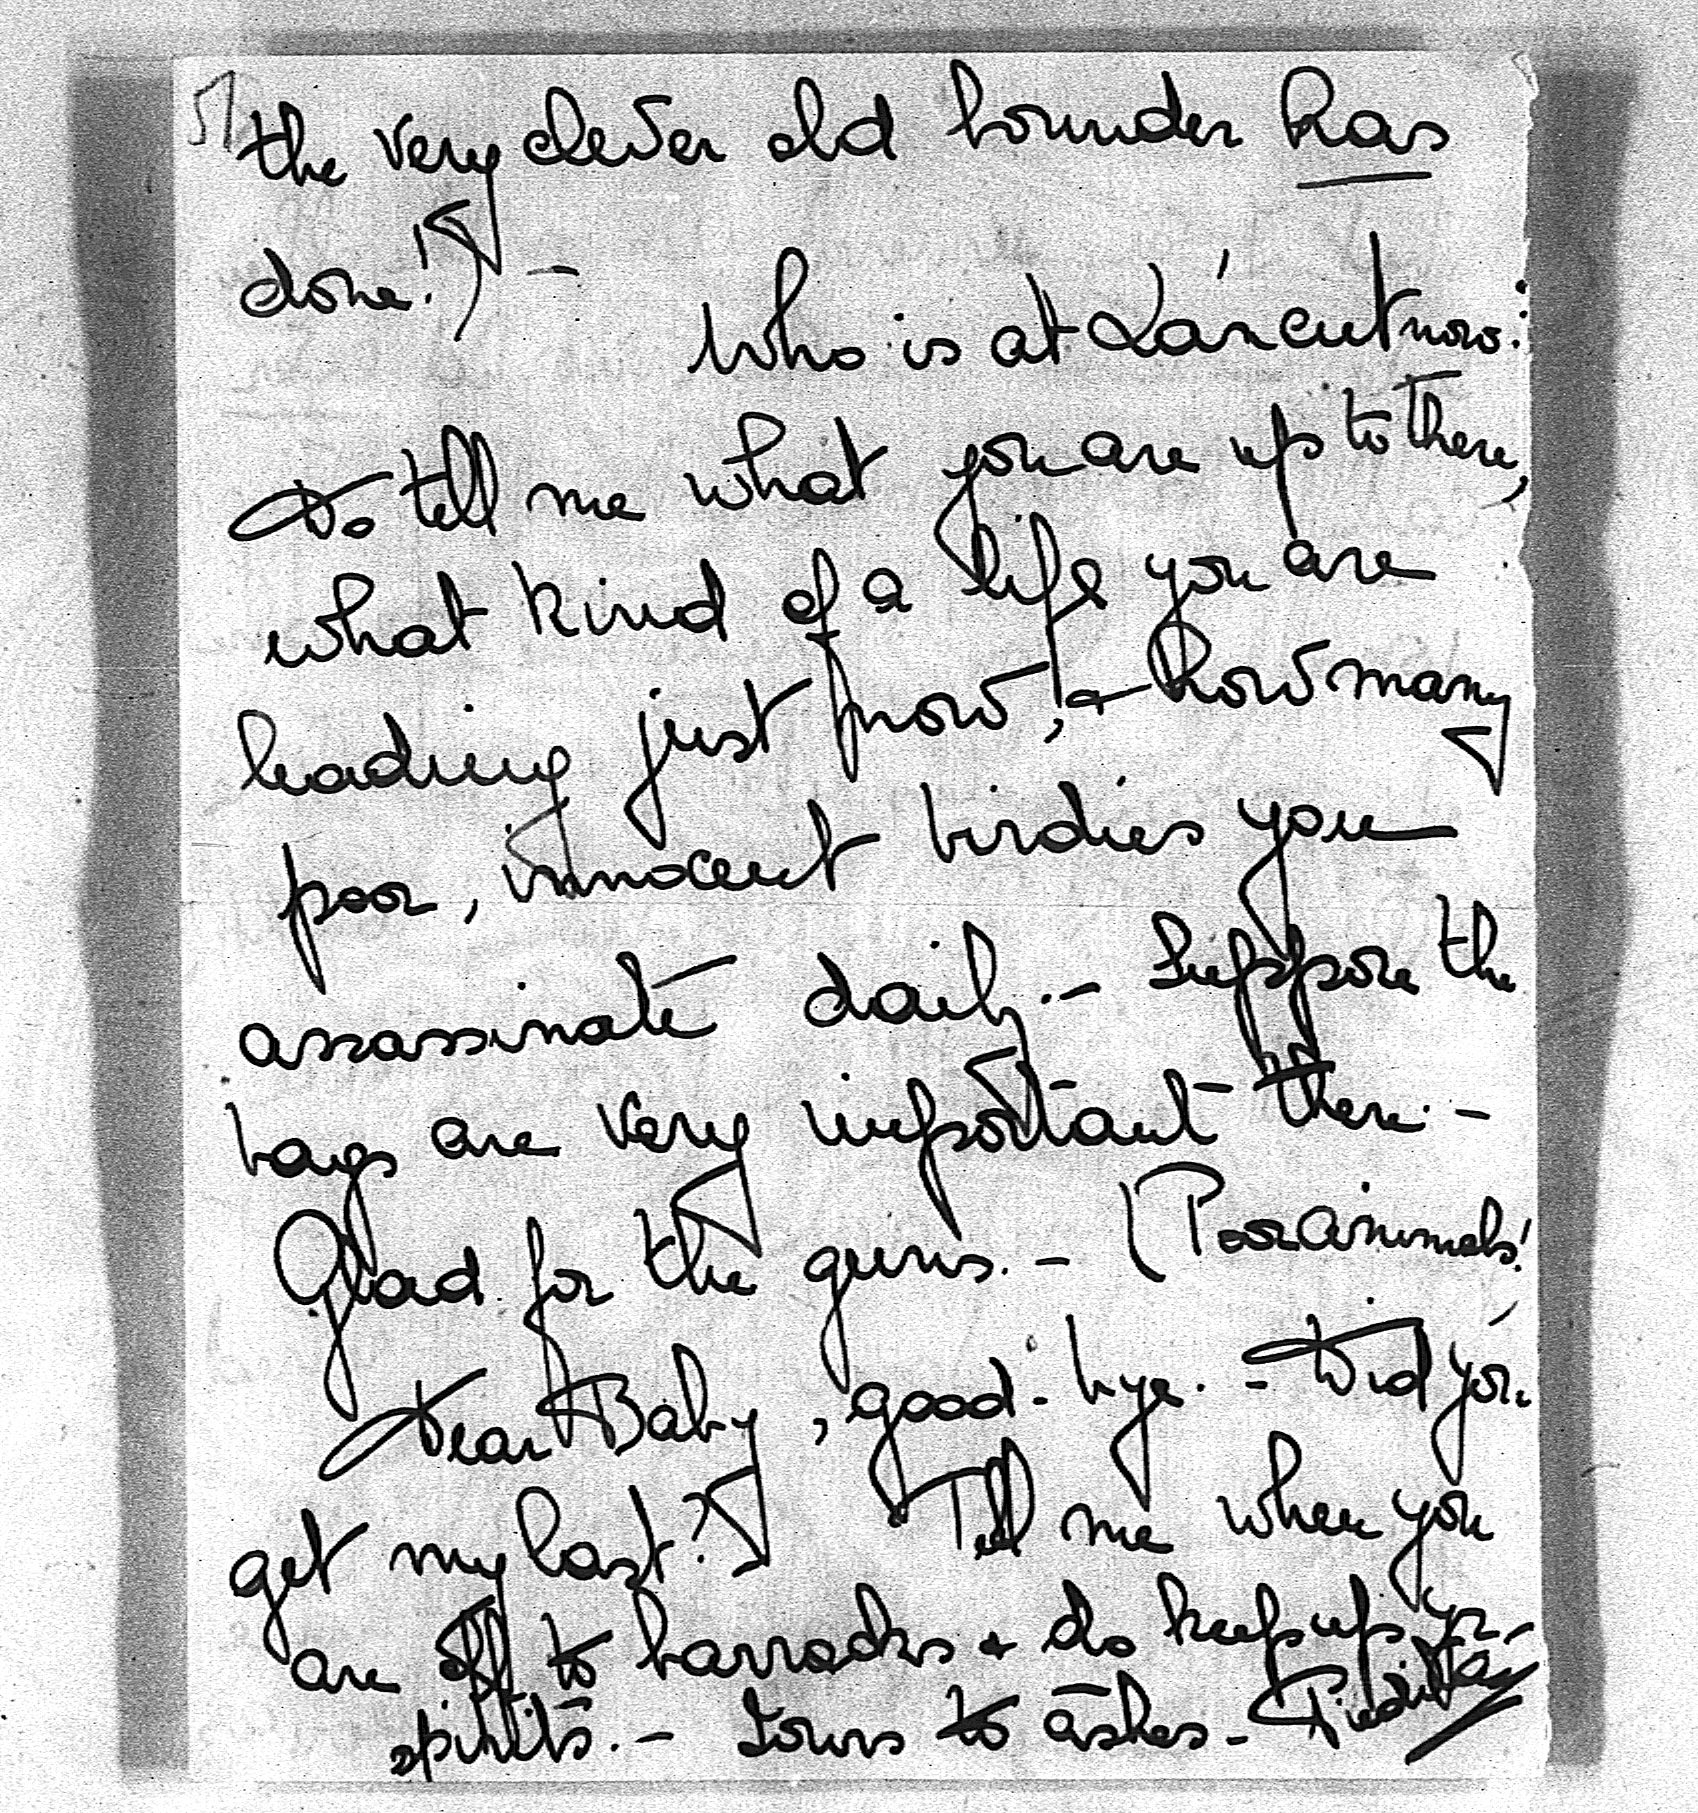 5/
the very clever old bounder has
done!) -
Who is at Łańcut now?
Do tell me what you are up to there,
what kind of a life you are
leading just now, & how many
poor, innocent birdies you
assassinate daily. - Suppose the
bags are very important there. -
Glad for the guns. - (Poor animals!
Dear Baby, good-bye. - Did you
get my last? Tell me when you
are off to barracks & do keep up yr
spirits. - Yours to ashes -